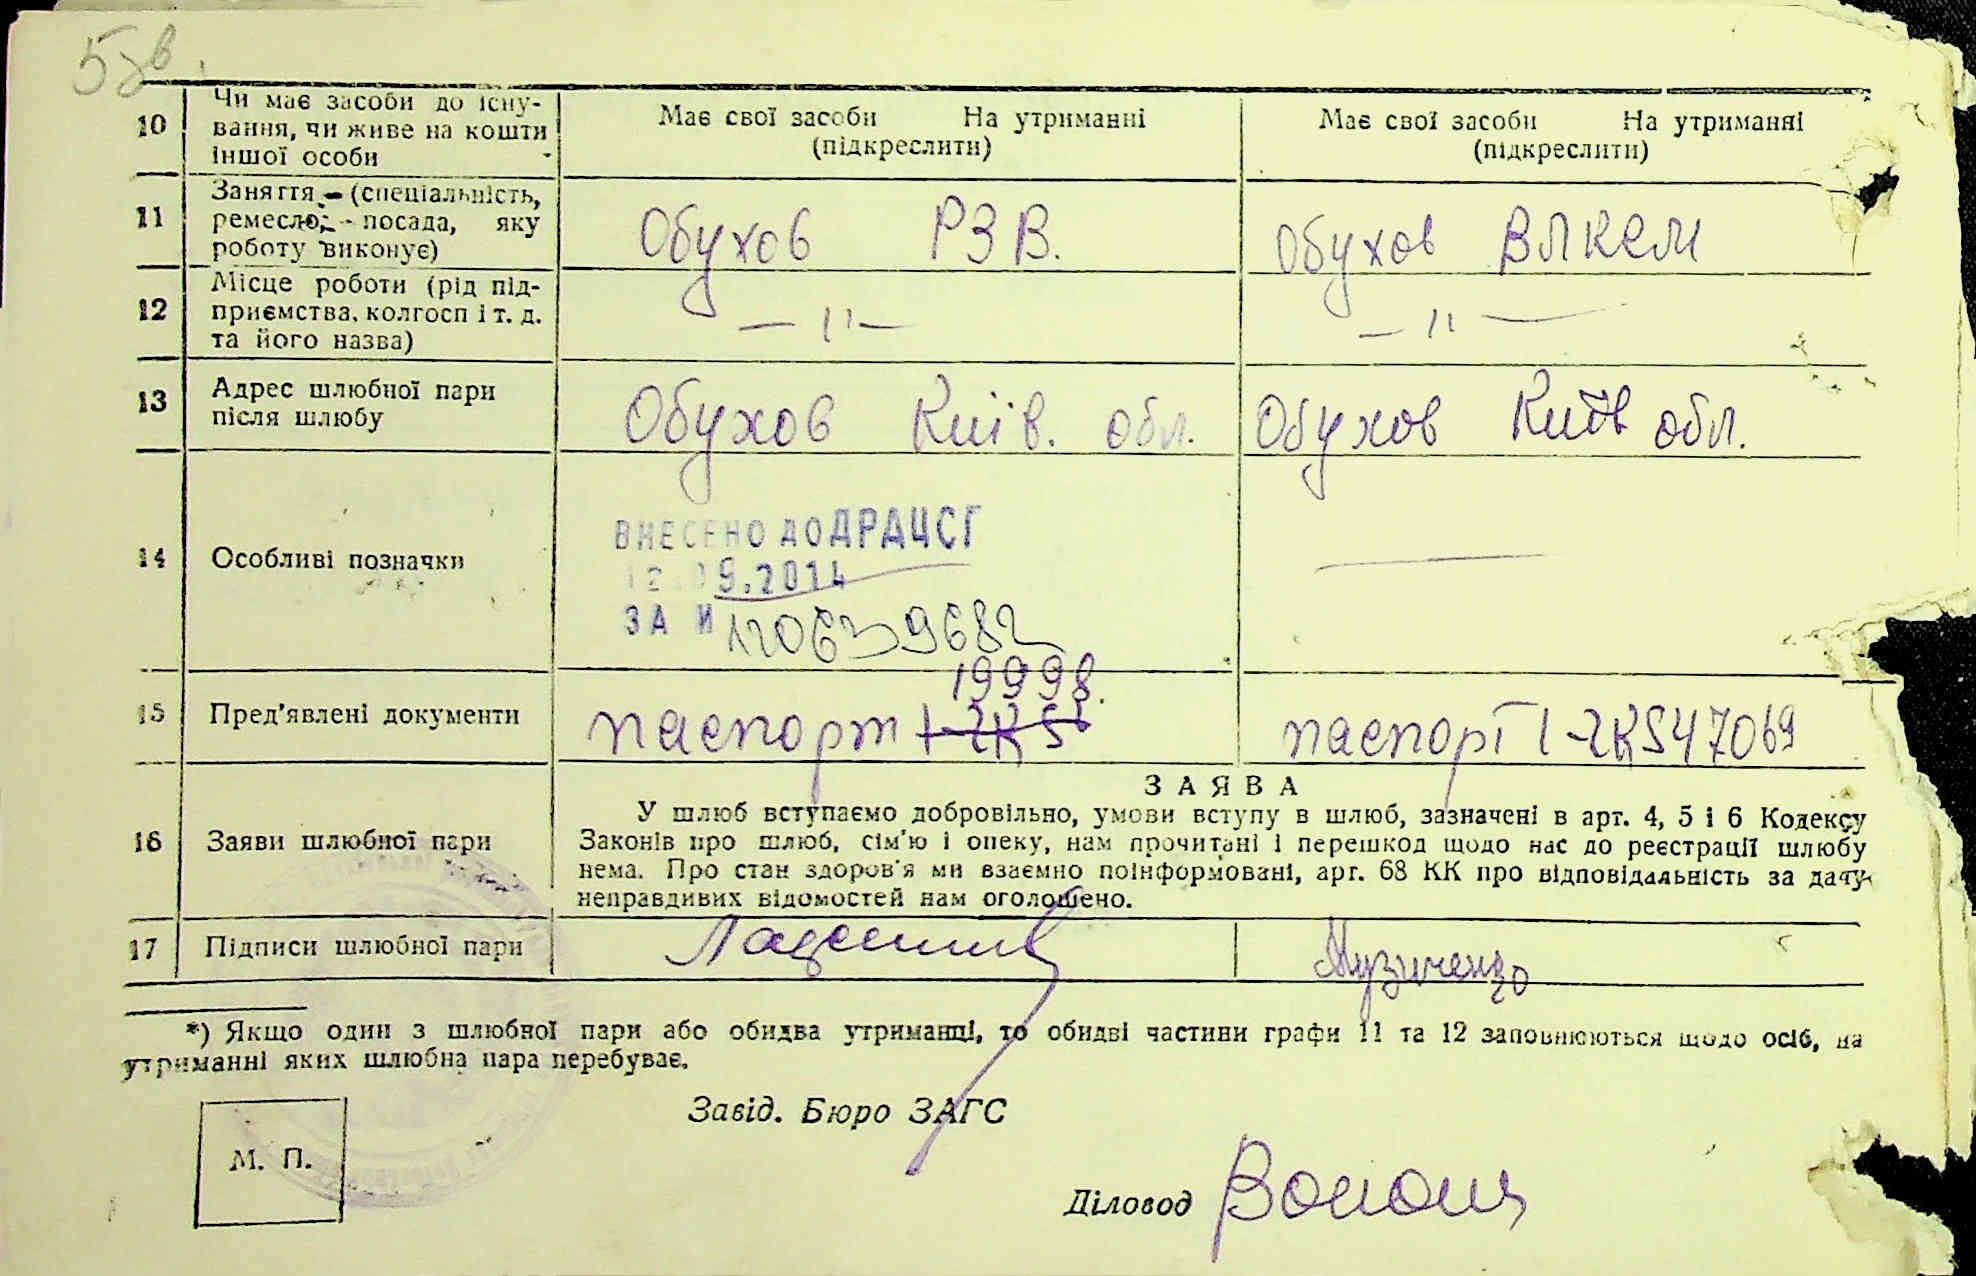 5зв.
10 Чи має засоби до існу- Має свої засоби На утриманні Має свої засоби На утриманні
вання, чи живе на кошти (підкреслити) (підкреслити)
іншої особи
11 Заняття — (спеціальність,
ремесло, - посада, яку Обухов РЗВ. Обухов ВЛКСМ
роботу виконує)
12 Місце роботи (рід під-
приємства, колгосп і т. д. — 〃 — — 〃 —
та його назва)
13 Адрес шлюбної пари Обухов Київ. обл. Обухов Київ обл.
після шлюбу
ВНЕСЕНО ДО ДРАЦСГ
14 Особливі позначки 12.09.2014 —
ЗА №
19998.
15 Пред'явлені документи паспорт І-ЧК 5 паспорт І-ЧК 547069
З А Я В А
У шлюб вступаємо добровільно, умови вступу в шлюб, зазначені в арт. 4, 5 і 6 Кодексу
16 Заяви шлюбної пари Законів про шлюб, сім'ю і опеку, нам прочитані і перешкод щодо нас до реєстрації шлюбу
нема. Про стан здоров'я ми взаємно поінформовані, арг. 68 КК про відповідальність за дачу
неправдивих відомостей нам оголошено.
17 Підписи шлюбної пари Музиченко
*) Якщо один з шлюбної пари або обидва утриманці, то обидві частини графи 11 та 12 заповнюються щодо осіб, на
утриманні яких шлюбна пара перебуває.
Завід. Бюро ЗАГС
М. П.
Діловод